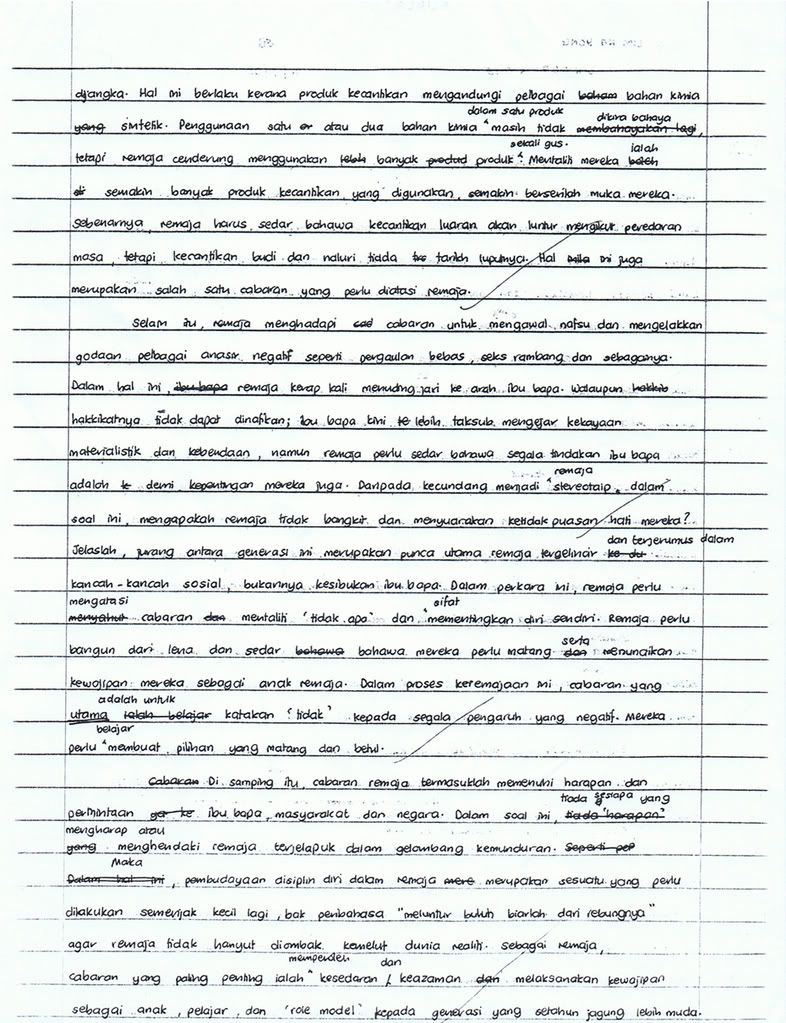 dijangka. Hal ini berlaku kerana produk kecantikan mengandungi pelbagai baham bahan kimia
dalam satu produk dikira bahaya
yang sintetik. Penggunaan satu or atau dua bahan kimia ^ masih tidak membahayakan lagi,
sekali gus. ialah
tetapi remaja cenderung menggunakan lebih banyak product produk ^. Mentaliti mereka boleh
di semakin banyak produk kecantikan yang digunakan, semakin berserilah muka mereka.
Sebenarnya, remaja harus sedar bahawa kecantikan luaran akan luntur mengikut peredaran
masa, tetapi kecantikan budi dan naluri tiada tarikh luputnya. Hal ini juga
merupakan salah satu cabaran yang perlu diatasi remaja.
Selain itu, remaja menghadapi cabaran untuk mengawal nafsu dan mengelakkan
godaan pelbagai anasir negatif seperti pergaulan bebas, seks rambang dan sebagainya.
Dalam hal ini, ibu bapa remaja kerap kali menuding jari ke arah ibu bapa. Walaupun hakkik
hakkikatnya tidak dapat dinafikan; ibu bapa kini te lebih taksub mengejar kekayaan
materialistik dan kebendaan, namun remaja perlu sedar bahawa segala tindakan ibu bapa
remaja
adalah te demi kepentingan mereka juga. Daripada kecundang menjadi ^ stereotaip dalam
soal ini, mengapakah remaja tidak bangkit dan menyuarakan ketidakpuasan hati mereka?
dan terjerumus dalam
Jelaslah, jurang antara generasi ini merupakan punca utama remaja tergelincir ke du
kancah-kancah sosial, bukannya kesibukan ibu bapa. Dalam perkara ini, remaja perlu
mengatasi sifat
menyahut cabaran dan mentaliti 'tidak apa' dan ^ mementingkan diri sendiri. Remaja perlu
serta
bangun dari lena dan sedar bahawa bahawa mereka perlu matang dan menunaikan
kewajipan mereka sebagai anak remaja. Dalam proses keremajaan ini, cabaran yang
adalah untuk
utama ialah belajar katakan 'tidak' kepada segala pengaruh yang negatif. Mereka
belajar
perlu ^ membuat pilihan yang matang dan betul.
Cabaran Di samping itu, cabaran remaja termasuklah memenuhi harapan dan
tiada sesiapa yang
permintaan ibu bapa, masyarakat dan negara. Dalam soal ini, tiada 'harapan'
mengharap atau
yang menghendaki remaja terjelapuk dalam gelombang kemunduran. Seperti pep
Maka
Dalam hal ini, pembudayaan disiplin diri dalam remaja mere merupakan sesuatu yang perlu
dilakukan semenjak kecil lagi, bak peribahasa "meluntur buluh biarlah dari rebungnya"
agar remaja tidak hanyut diombak kemelut dunia realiti. Sebagai remaja,
memperoleh dan
cabaran yang paling penting ialah ^ kesedaran / keazaman dan melaksanakan kewajipan
sebagai anak, pelajar, dan 'role model' kepada generasi yang setahun jagung lebih muda.